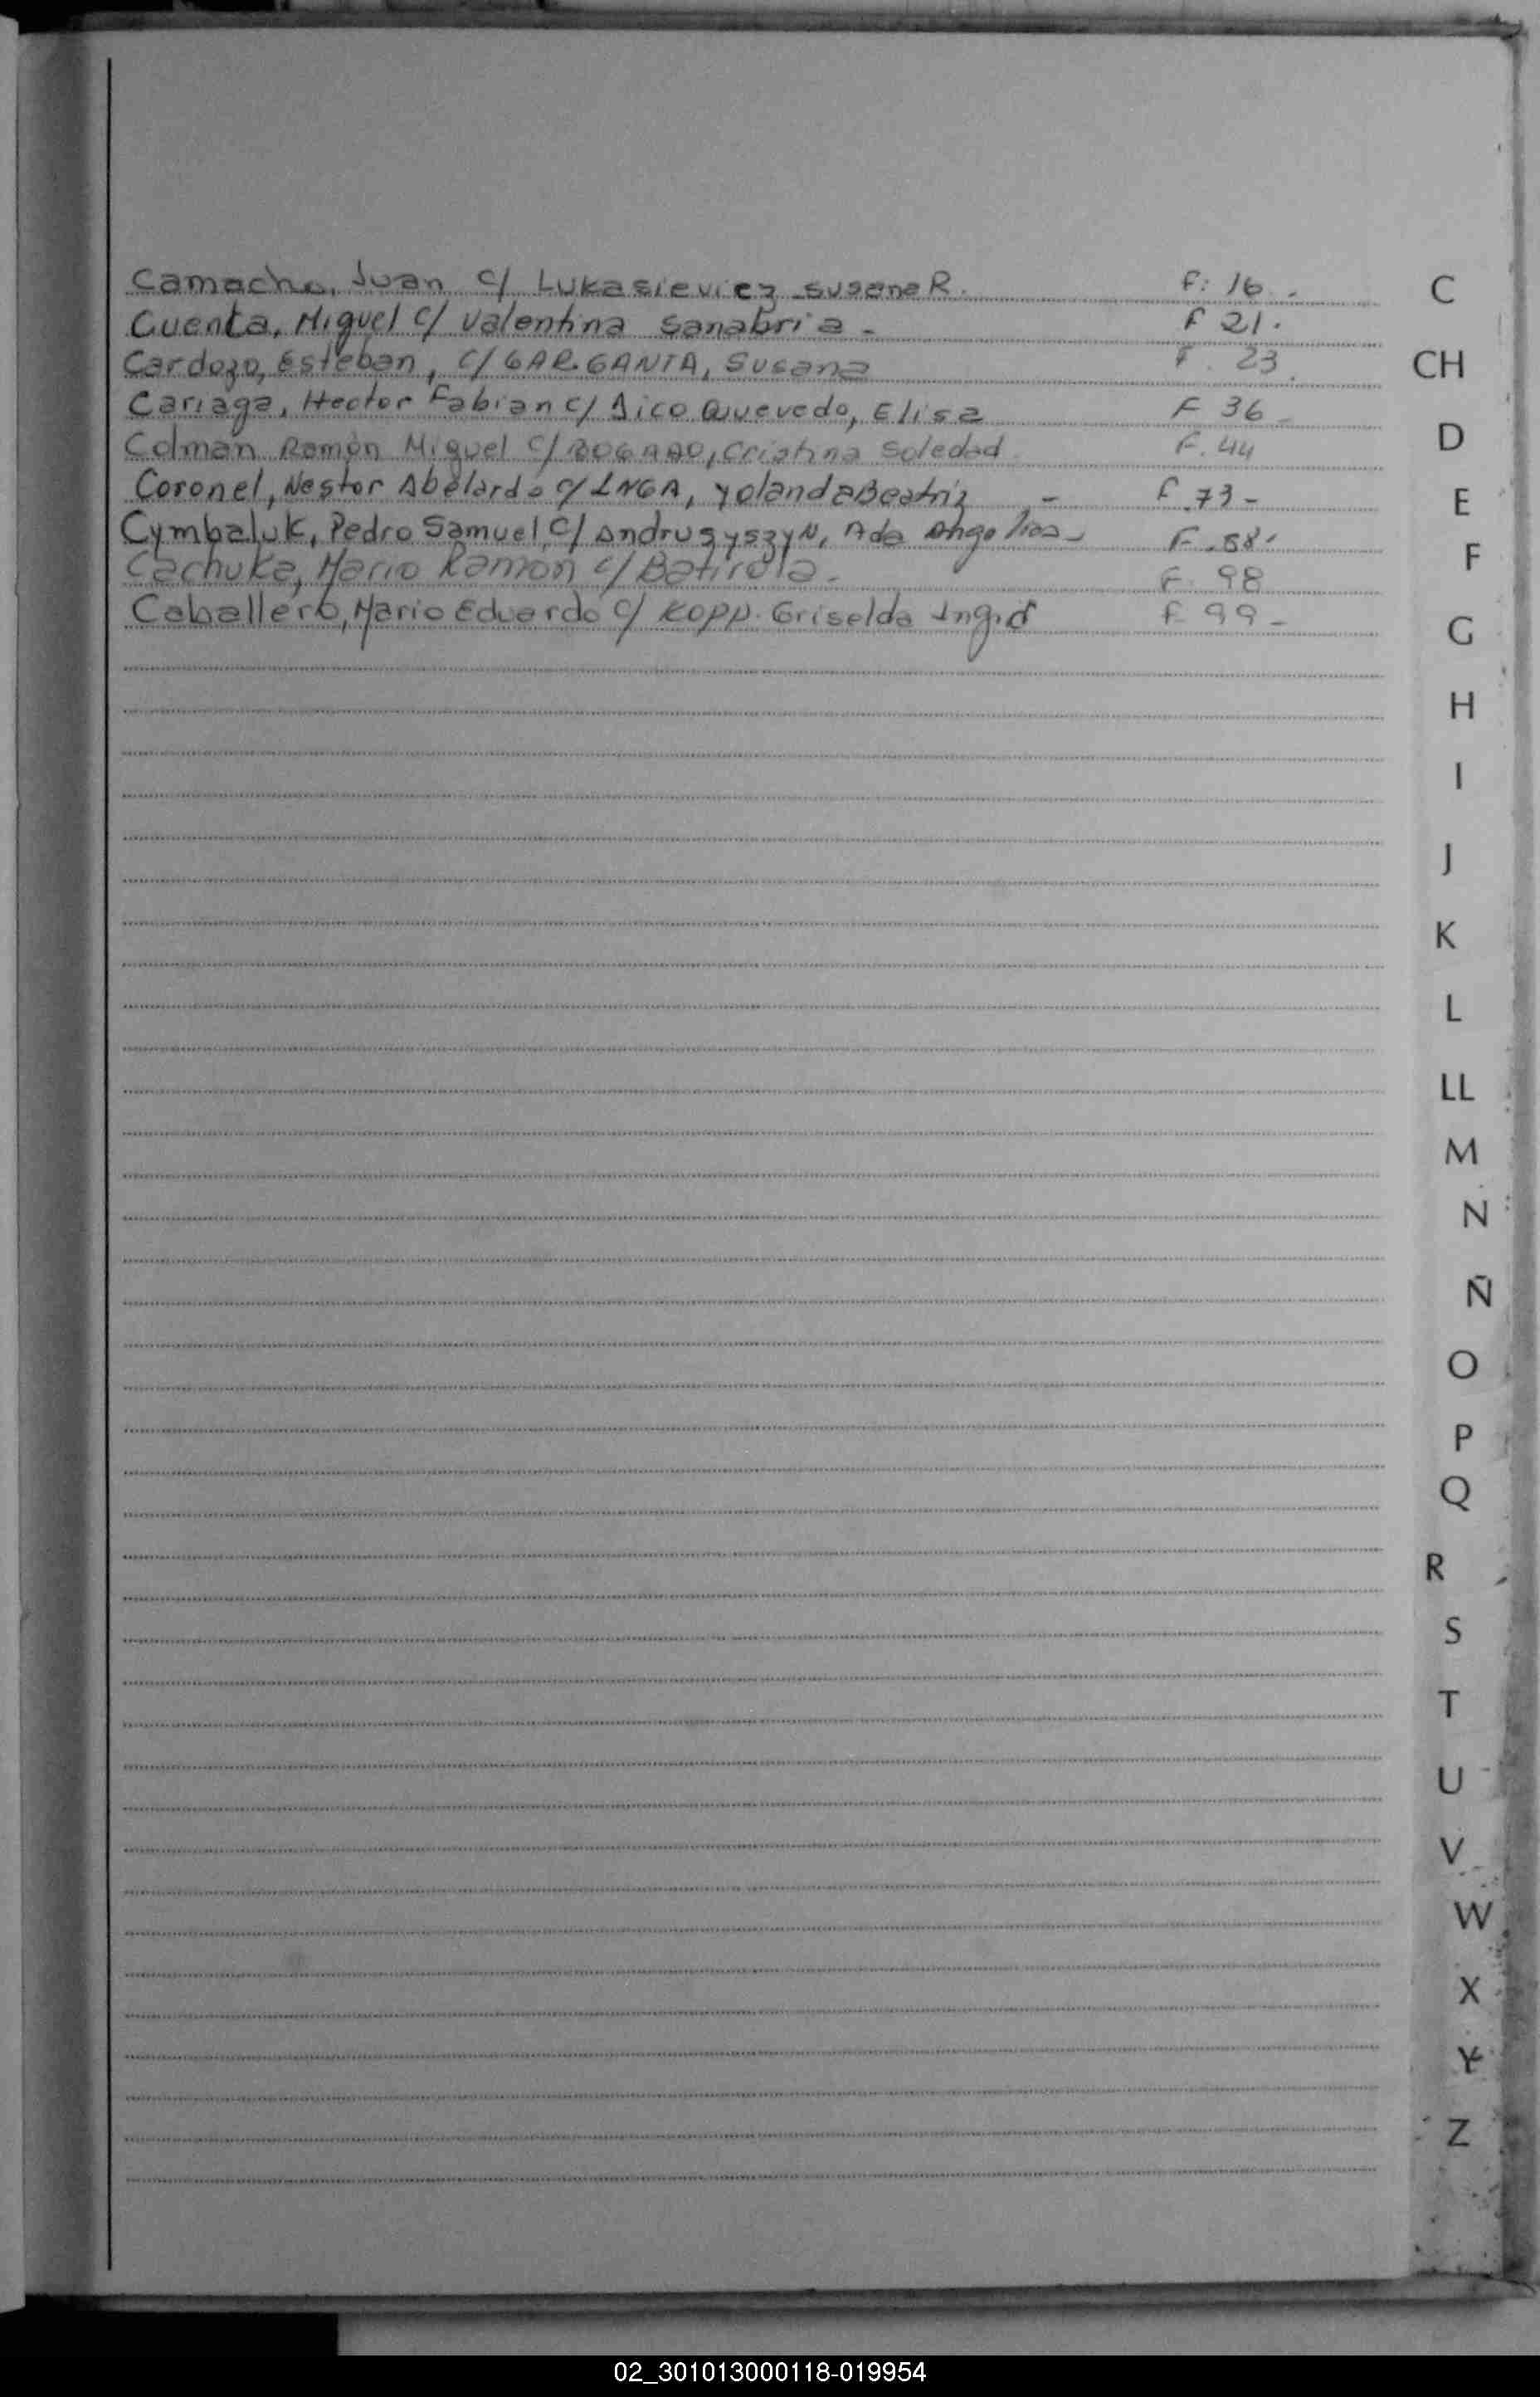 Camacho, Juan c/ Lukasieviez Susana R. F: 16.
Cuenta, Miguel c/ Valentina Sanabria - F 21.
Cardozo, Esteban, c/ GARGANTA, Susana F. 23.
Cariaga, Hector Fabian c/ Quevedo, Elisa F 36 -
Colman Ramón Miguel c/ Cristina Soledad F. 44
Coronel, Nestor Abelardo c/ INGA, Yolanda Beatriz - F. 73 -
Cymbaluk, Pedro Samuel c/ Andrusyszyn, Ada F. 88.
Cachuka, Mario Ramon c/ Batirola. F. 98
Caballero, Mario Eduardo c/ Kopp. Griselda Ingrid F 99 -
C
CH
D
E
F
G
H
I
J
K
L
LL
M
N
Ñ
O
P
Q
R
S
T
U
V
W
X
Y
Z
02_301013000118-019954